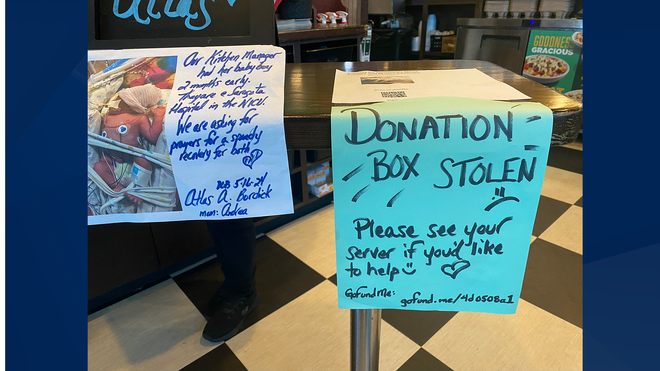 Atlas
Our Kitchen Manager
had her baby boy
2 months early.
They are @ Sarasota
Hospital in the NICU.
We are asking for
prayers for a speedy
recovery for both
DOB 5-16-24
Atlas A. Bordick
mom: Andrea
DONATION
BOX STOLEN
Please see your
server if you'd like
to help
GoFundMe:
gofund.me/4d0508a1
GOODNESS